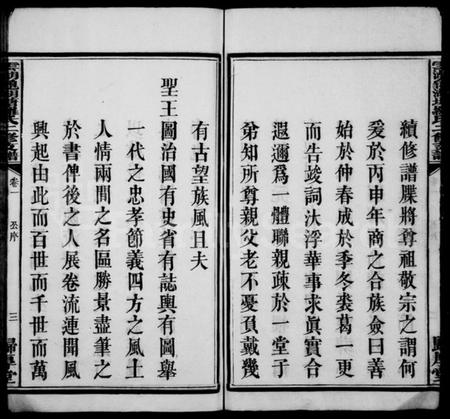 續修譜牒將尊祖敬宗之謂何
爰於丙申年商之合族僉曰善
始於仲春成於季冬裘葛一更
而告竣詞汰浮華事求眞實合
遐邇爲一體聯親疎於一堂于
弟知所尊親父老不憂負戴幾
有古望族風且夫
聖王圖治國有史省有誌輿有圖舉
一代之忠孝節義四方之風土
人情兩間之名區勝景盡筆之
於書俾後之人展卷流連聞風
興起由此而百世而千世而萬
卷一
丕序
三
歸厚堂